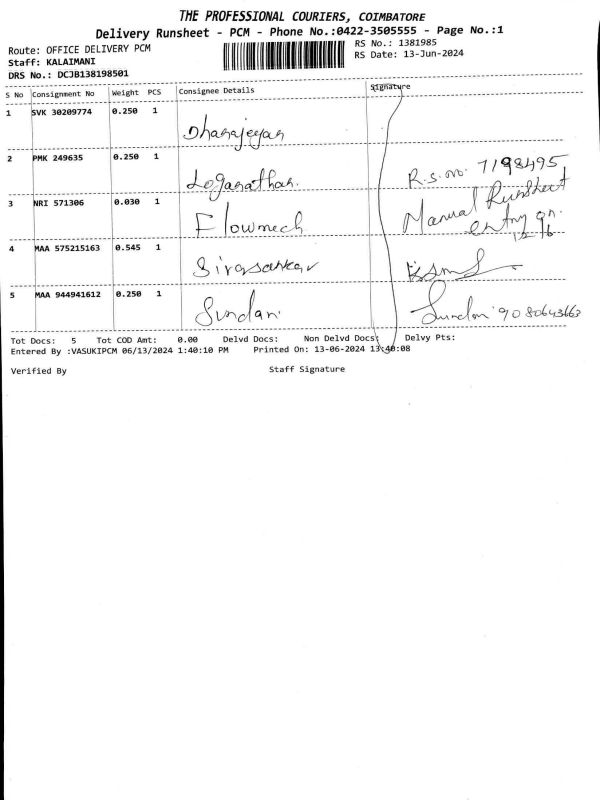 THE PROFESSIONAL COURIERS, COIMBATORE
Delivery Runsheet - PCM - Phone No.:0422-3505555 - Page No.:1
Route: OFFICE DELIVERY PCM
RS No.: 1381985
Staff: KALAIMANI
RS Date: 13-Jun-2024
DRS No.: DCJB138198501
S No Consignment No Weight PCS Consignee Details Signature
1 SVK 30209774 0.250 1
Dhanajeyan
2 PMK 249635 0.250 1
Loganathan. R.S.no. 7198495
3 NRI 571306 0.030 1 Manual Runsheet
Flowmech entry on.
4 MAA 575215163 0.545 1
Sivasankar
5 MAA 944941612 0.250 1
Sundar. Sundar 9080643663
Tot Docs: 5 Tot COD Amt: 0.00 Delvd Docs: Non Delvd Docs: Delvy Pts:
Entered By :VASUKIPCM 06/13/2024 1:40:10 PM Printed On: 13-06-2024 13:40:08
Verified By Staff Signature